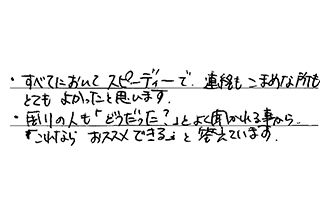 ・すべてにおいてスピーディーで、連絡もこまめな所も
とてもよかったと思います。
・周りの人も「どうだった?」とよく聞かれる事から
「これならおススメできる」と答えています。